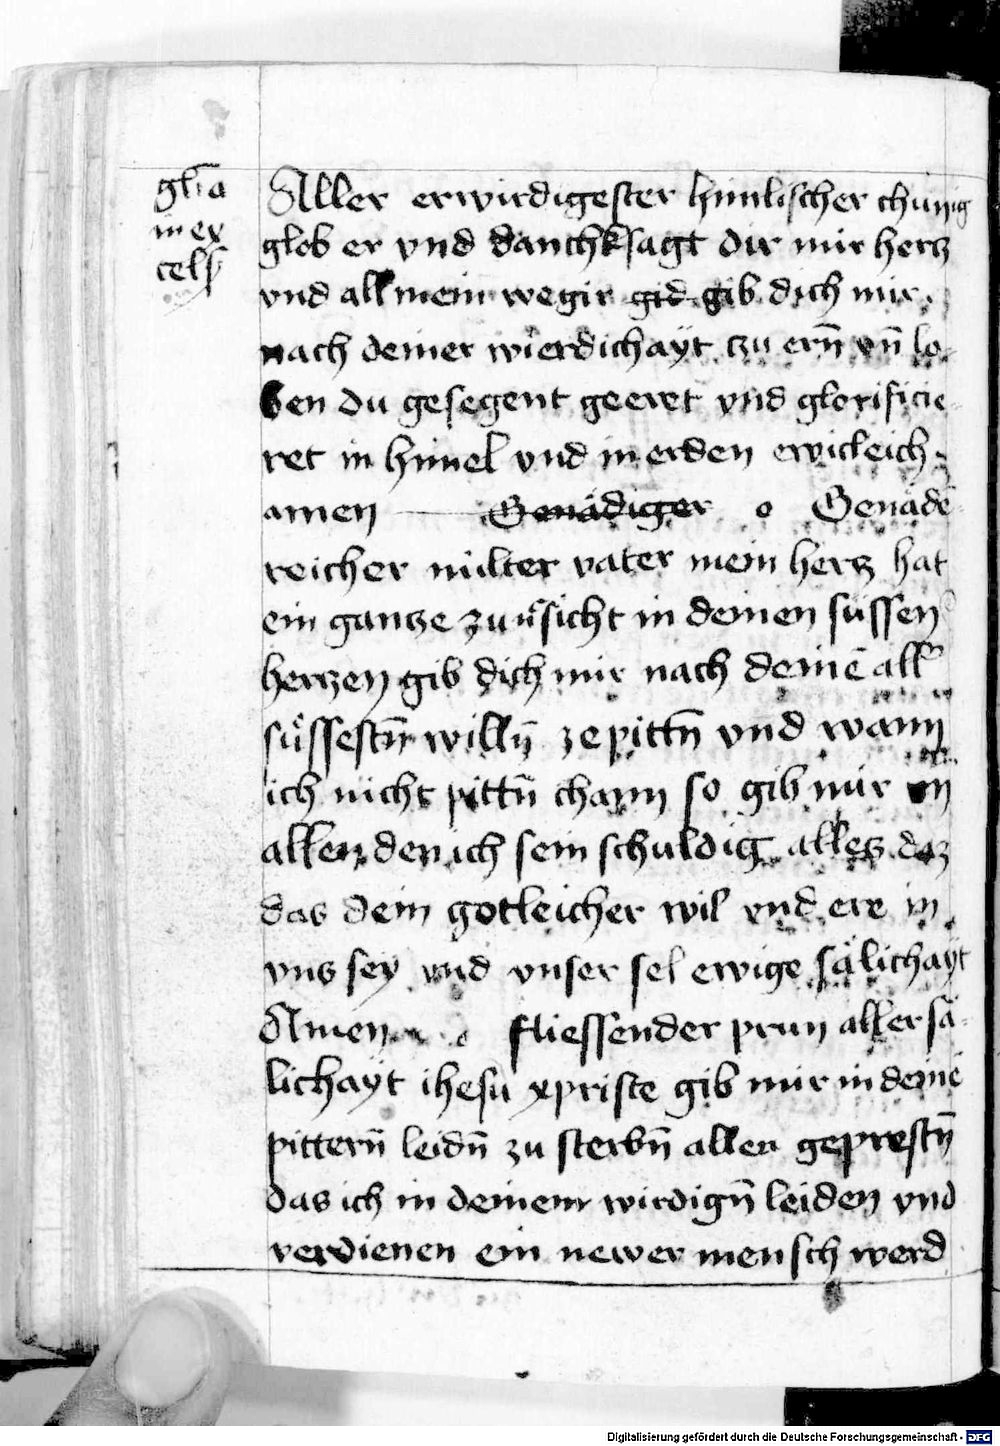 gl̄ia
in ex
celſ
Aller erwirdigeſter himliſcher chunig
glob er vnd danchkſagt dir mir hertz
vnd all mein wegir gid gib dich mir
nach deiner wierdichaÿt tzu ern̄ vn̄ lo
ben du geſegent geeret vnd glorificie
ret in himel vnd in erden ewicleich
amen Genädiger o Genadē
reicher milter vater mein hertz hat
ein gantze zuuͤſicht in deinen ſüſſen
hertzen gib dich mir nach deinē all
ſuͤſſeſtn̄ willn̄ ze pittn̄ vnd wann
ich nicht pittn̄ chann ſo gib mir vn
allen den ich ſein ſchuldig alles daz
das dein gotleicher wil vnd ere in
vns ſey vnd vnſer ſel ewige ſälichaÿt
Amen o flieſſender prun aller ſä
lichaÿt iheſu xpriſte gib mir in deinē
pittern̄ leidn̄ zu ſterbn̄ allen gepreſtn̄
das ich in deinem wirdign̄ leiden vnd
verdienen ein newer menſch werd
Digitalisierung gefördert durch die Deutsche Forschungsgemeinschaft - DFG